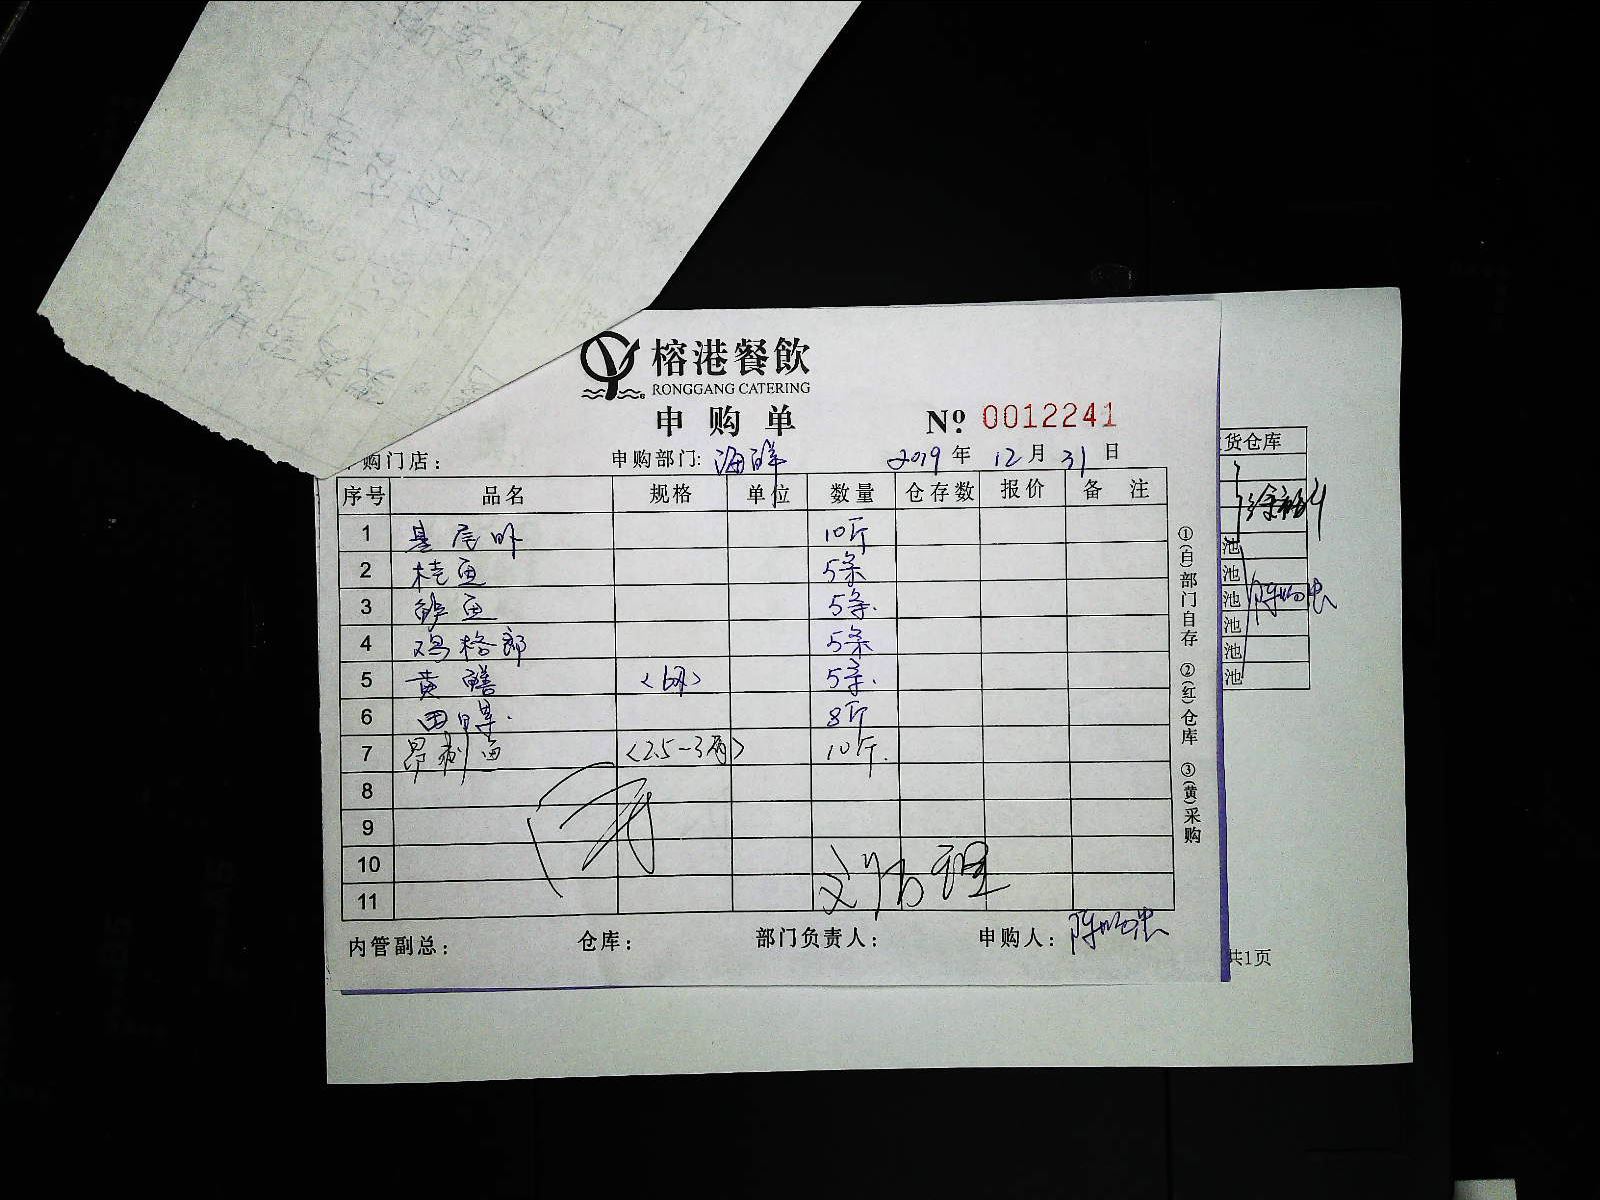 榕港餐飲
RONGGANG CATERING
申购单
No. 0012241
购门店：
申购部门: 海鲜 2019 年 12 月 31 日
序号 品名 规格 单位 数量 仓存数 报价 备注
1 基尾虾 10斤
2 桂鱼 5条
3 鲈鱼 5条.
4 鸡格郎 5条
5 黄鳝 5条.
6 田螺. 8斤
7 昂刺鱼 <2.5-3两> 10斤.
8
9
10
11
内管副总： 仓库： 部门负责人： 申购人：
①(白)部门自存 ②(红)仓库 ③(黄)采购
货仓库
池
池
池
池
池
池
共1页